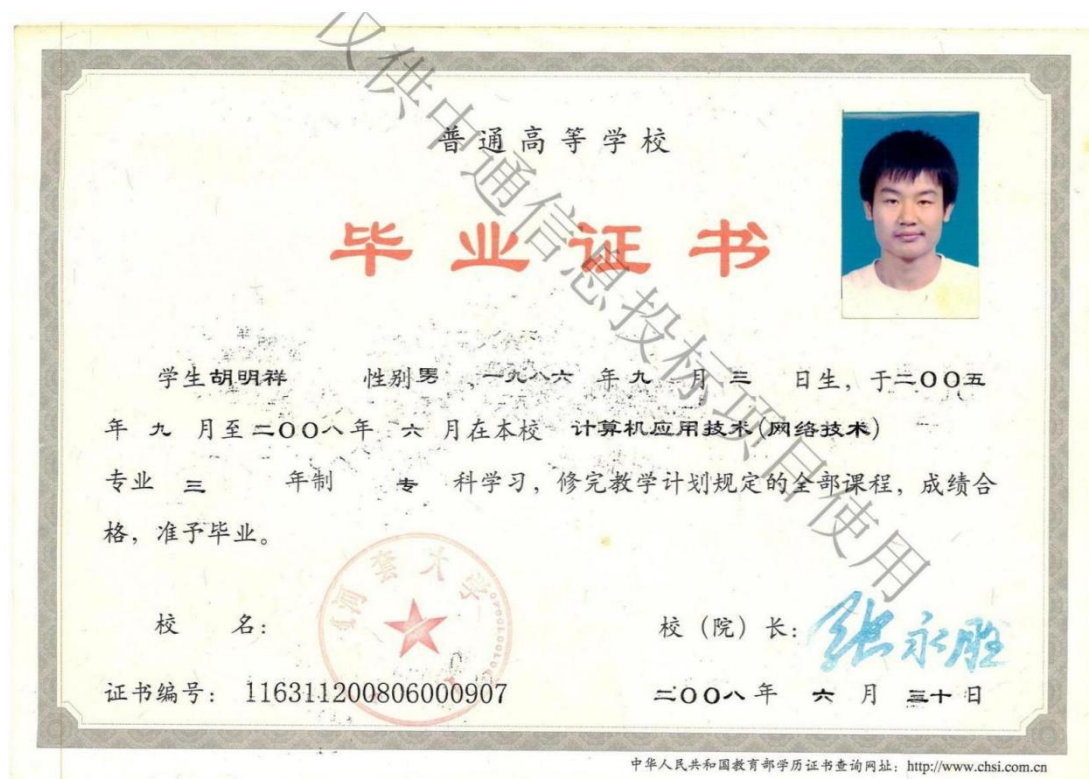 普通高等学校
毕业证书
学生胡明祥 性别男，一九八六年九月三日生，于二〇〇五
年九月至二〇〇八年六月在本校 计算机应用技术(网络技术)
专业三年制专科学习，修完教学计划规定的全部课程，成绩合
格，准予毕业。
河套大学
校名：
校（院）长：张永胜
证书编号：116311200806000907
二〇〇八年六月三十日
中华人民共和国教育部学历证书查询网址：http://www.chsi.com.cn
仅供中通信息投标项目使用